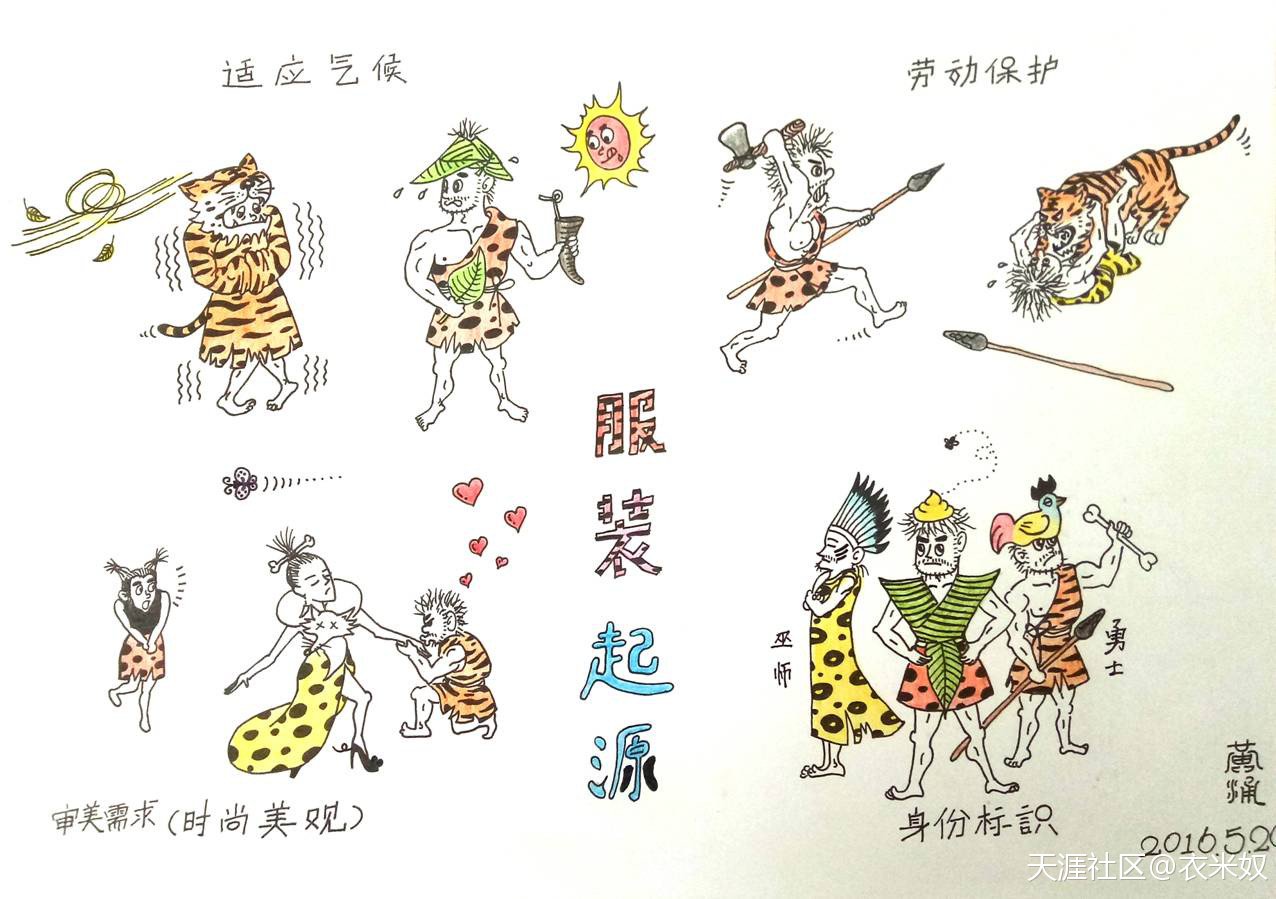 适应气候
劳动保护
服装起源
巫师
勇士
审美需求(时尚美观)
身份标识
黄涌
2016.5.20
天涯社区@衣米奴